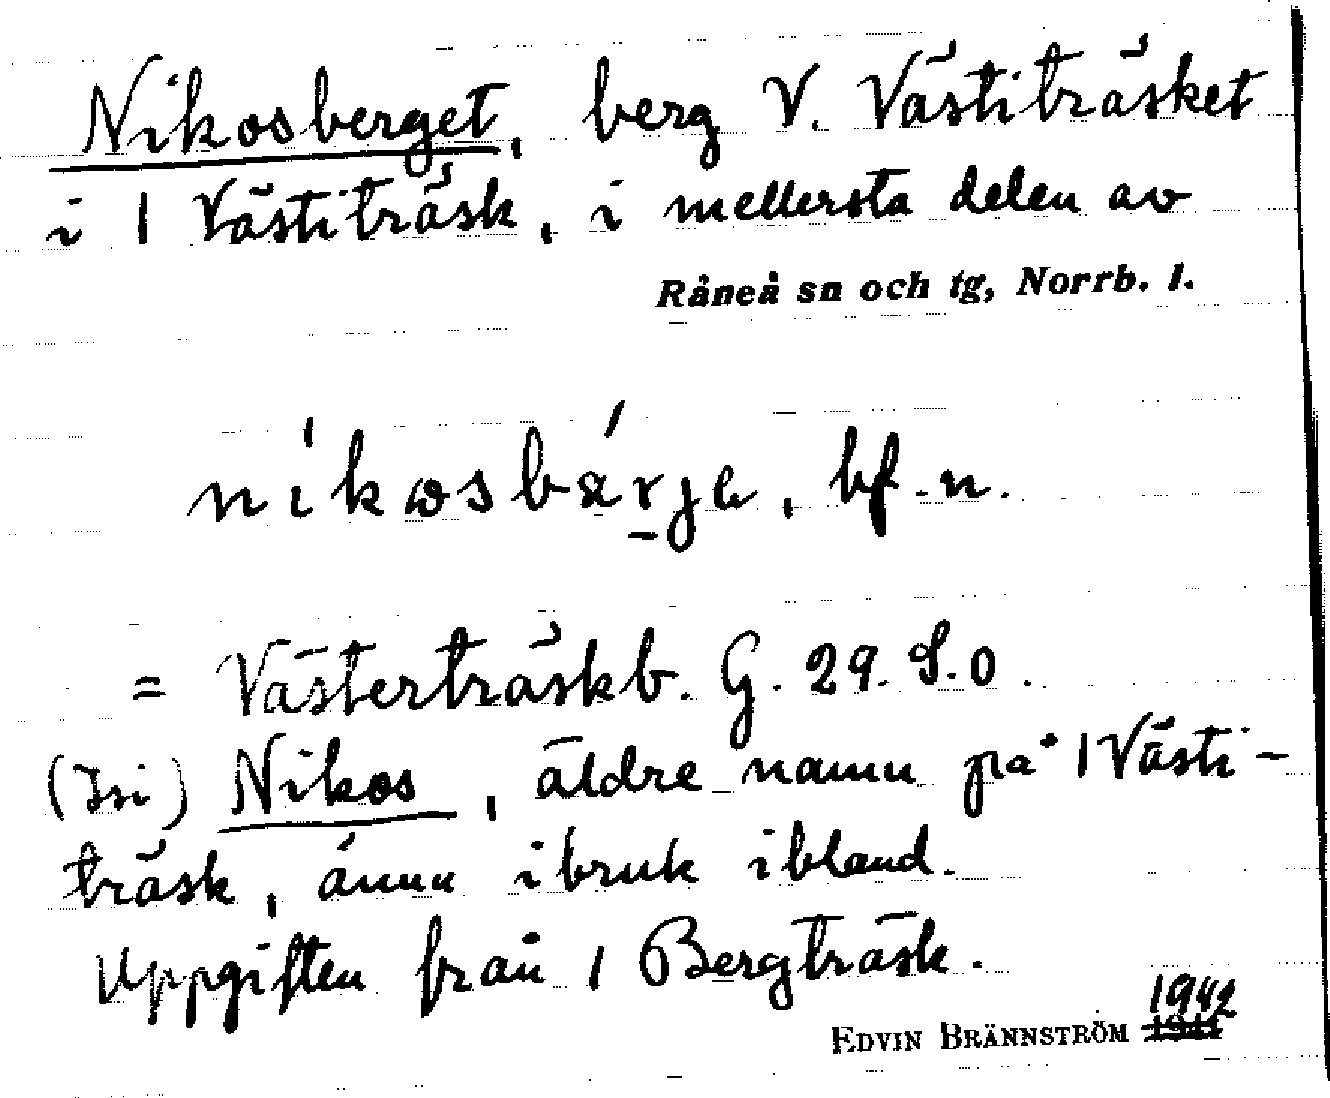 Nikosberget, berg V. Västiträsket
i 1 Västiträsk, i mellersta delen av
Råneå sn och tg, Norrb. l.
níkωsbä́rje, bf. n.
= Västerträskb. G. 29. S.O.
(Isi) Nikos, äldre namn på 1 Västi-
träsk, ännu i bruk ibland.
Uppgiften från 1 Bergträsk.
1942
EDVIN BRÄNNSTRÖM 1941